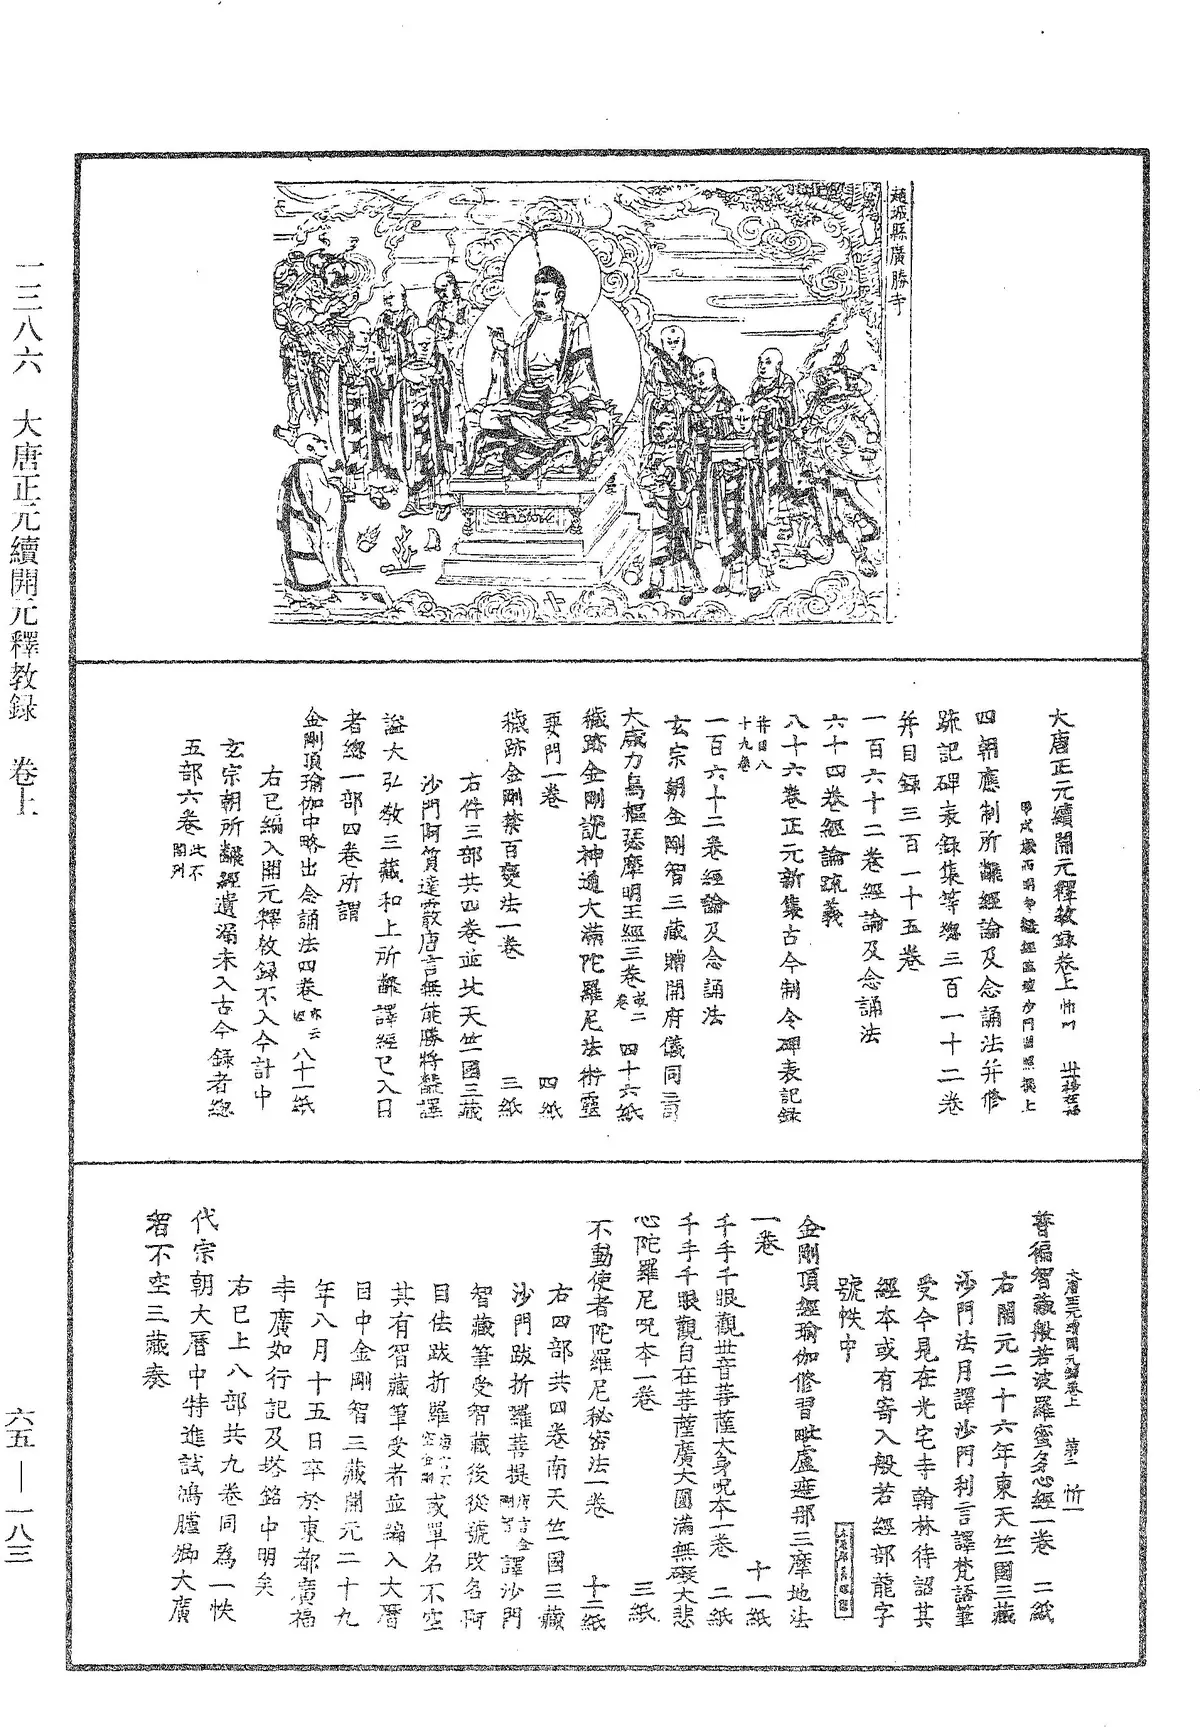 趙城縣廣勝寺
大唐正元續開元釋教録卷上
甲戌歲西明寺翻經臨壇沙門圓照撰上
四朝應制所翻經論及念誦法并修
疏記碑表録集等緫三百一十二卷
并目録三百一十五卷
一百六十二卷經論及念誦法
六十四卷經論疏義
八十六卷正元新集古今制令碑表記録
并目八
十九卷
一百六十二卷經論及念誦法
玄宗朝金剛智三藏贈開府儀同三司
大威力烏樞瑟摩明王經三卷 或二卷 四十六紙
穢跡金剛說神通大滿陀羅尼法術靈
要門一卷 四紙
穢跡金剛禁百變法一卷 三紙
右件三部共四卷並北天竺國三藏
沙門阿質達霰唐言無能勝將翻譯
謚大弘教三藏和上所翻譯經已入目
者緫一部四卷所謂
金剛頂瑜伽中略出念誦法四卷 亦云經 八十一紙
右已編入開元釋教録不入今計中
玄宗朝所翻經遺漏未入古今録者緫
五部六卷 此不開列
普徧智藏般若波羅蜜多心經一卷 二紙
大唐正元續開元録卷上 第二
右開元二十六年東天竺國三藏
沙門法月譯沙門利言譯梵語筆
受今見在光宅寺翰林待詔其
經本或有寄入般若經部龍字
號帙中
金剛頂經瑜伽修習毗盧遮那三摩地法
一卷 十一紙
千手千眼觀世音菩薩大身呪本一卷 二紙
千手千眼觀自在菩薩廣大圓滿無礙大悲
心陀羅尼呪本一卷 三紙
不動使者陀羅尼秘密法一卷 十二紙
右四部共四卷南天竺國三藏
沙門跋折羅菩提 唐言金剛智 譯沙門
智藏筆受智藏後從號改名阿
目佉跋折羅 唐云不空金剛 或單名不空
其有智藏筆受者並編入大曆
目中金剛智三藏開元二十九
年八月十五日卒於東都廣福
寺廣如行記及塔銘中明矣
右已上八部共九卷同爲一帙
代宗朝大曆中特進試鴻臚卿大廣
智不空三藏奏
一三八六 大唐正元續開元釋教録 卷上
六五—一八三